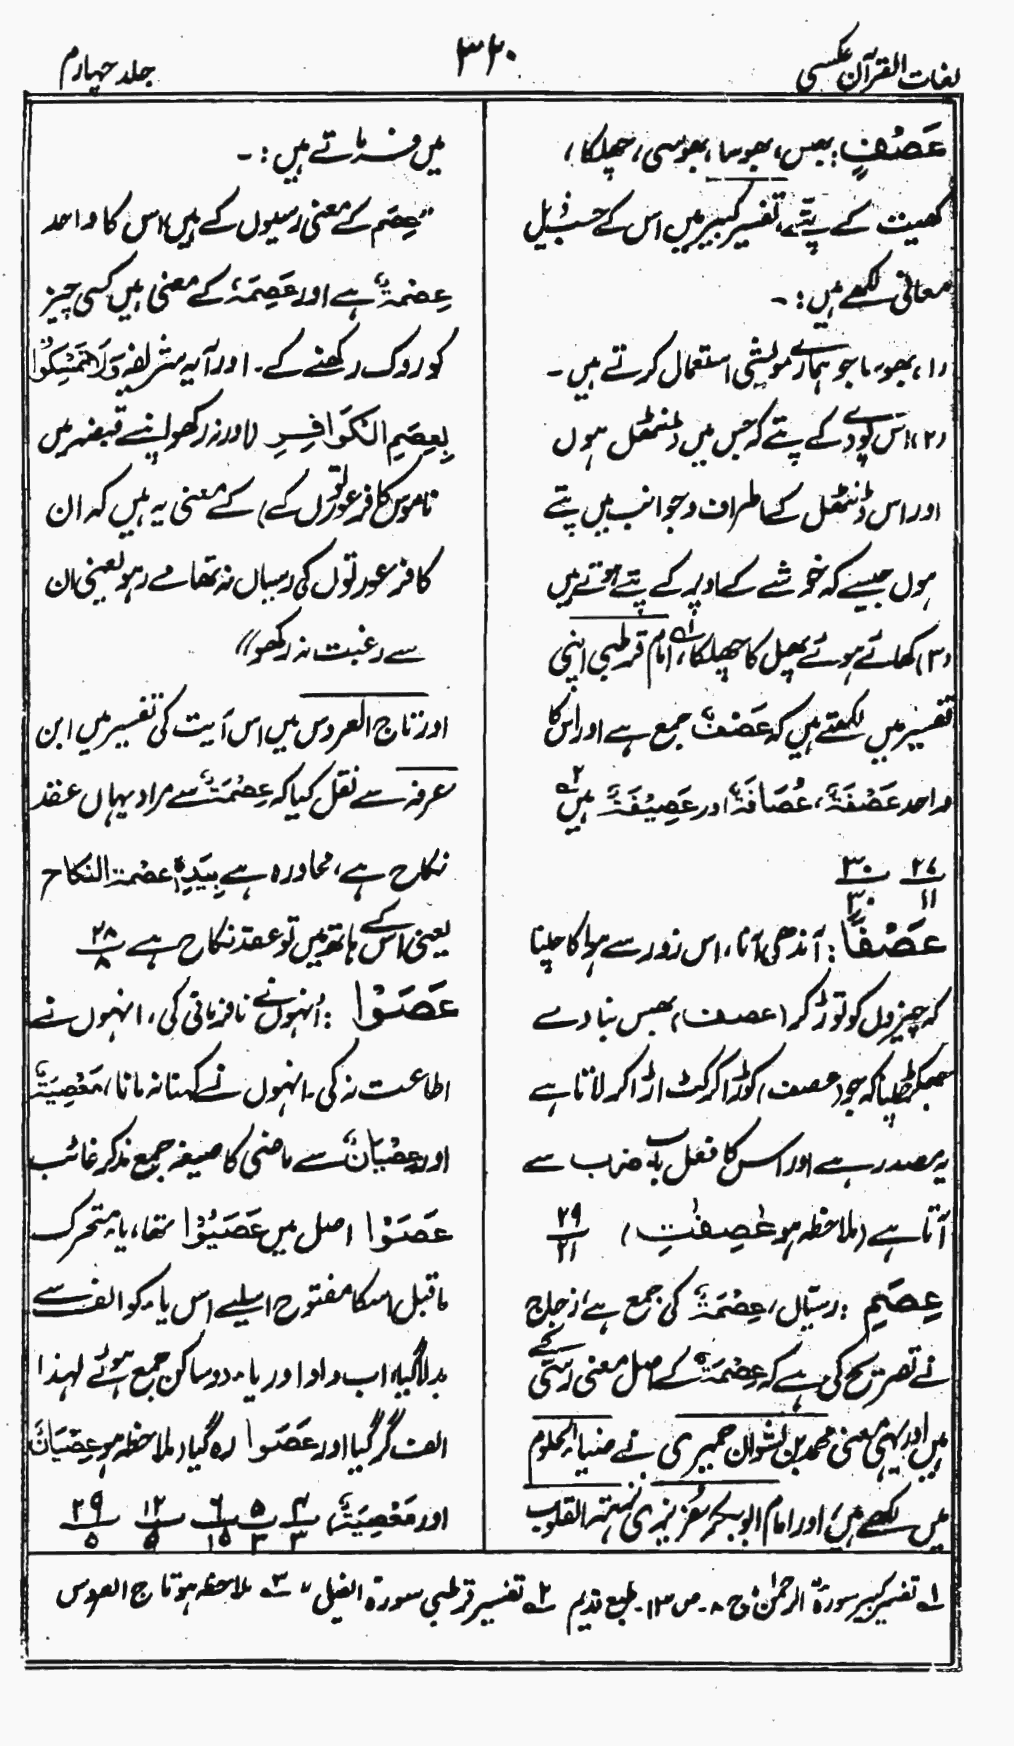 لغات القرآن عکسی
۳۲۰
جلد چہارم
عَصْفٍ: بھس، بھوسا، بھوسی، چھلکا،
کھیت کے پتّے، تفسیر کبیر میں اس کے حسب ذیل
معانی لکھے ہیں:-
(۱) بھوسا جو ہمارے مویشی استعمال کرتے ہیں۔
(۲) اس پودے کے پتے کہ جس میں ڈنٹھل ہوں
اور اس ڈنٹھل کے اطراف و جوانب میں پتے
ہوں جیسے کہ خوشے کے اوپر کے پتے ہوتے ہیں
(۳) کھائے ہوئے پھل کا چھلکا، ۱ے امام قرطبی اپنی
تفسیر میں لکھتے ہیں کہ عَصْفٌ جمع ہے اور اس کا
واحد عَصْفَۃٌ، عُصَافَۃٌ اور عَصِیْفَۃٌ ہیں ۲ے
۲۷/۱۱ ۳۰/۳۰
عَصْفًا: آندھی آنا، اس زور سے ہوا کا چلنا
کہ چیزوں کو توڑ کر (عصف) بھس بنا دے
جھکڑ چلنا کہ جو (عصف) کوڑا کرکٹ اڑا کر لاتا ہے
یہ مصدر ہے اور اس کا فعل باب ضرب سے
آتا ہے (ملاحظہ ہو عٰصِفٰتِ) ۲۹/۲۱
عِصَمِ: رسیّاں، عِصْمَۃٌ کی جمع ہے، زجاج
نے تصریح کی ہے کہ عِصْمَۃٌ کے اصل معنی رسّی کے
ہیں اور یہی معنی محمد بن نشوان حمیری نے ضیاء الحلوم
میں لکھے ہیں، اور امام ابوبکر عزیزی نزہتہ القلوب
میں فرماتے ہیں:-
"عِصَم کے معنی رسیوں کے ہیں، اس کا واحد
عِصْمَۃٌ ہے اور عَصِمَۃٌ کے معنی ہیں کسی چیز
کو روک رکھنے کے۔ اور آیہ شریفہ وَلَا تُمْسِکُوْا
بِعِصَمِ الْکَوَافِرِ (اور نہ رکھو اپنے قبضہ میں
ناموس کافر عورتوں کے) کے معنی یہ ہیں کہ ان
کافر عورتوں کی رسیاں نہ تھامے رہو یعنی ان
سے رغبت نہ رکھو"
اور تاج العروس میں اس آیت کی تفسیر میں ابن
عرفہ سے نقل کیا کہ عِصْمَۃٌ سے مراد یہاں عقد
نکاح ہے، محاورہ ہے بِیَدِہٖ عصمۃ النکاح
یعنی اس کے ہاتھ میں تو عقد نکاح ہے ۲۸/۸
عَصَوْا: اُنہوں نے نافرمانی کی، انہوں نے
اطاعت نہ کی۔ انہوں نے کہنا نہ مانا، مَعْصِیَۃٌ
اور عِصْیَانٌ سے ماضی کا صیغہ جمع مذکر غائب
عَصَوْا اصل میں عَصَیُوْا تھا، یاء متحرک
ماقبل اسکا مفتوح اسلیے اس یاء کو الف سے
بدلا گیا، اب واؤ اور یاء دو ساکن جمع ہوئے لہذا
الف گر گیا اور عَصَوا رہ گیا (ملاحظہ ہو عِصْیَانٌ
اور مَعْصِیَۃٌ) ۴/۳ ۵/۳ ۶/۱۵ ۱۲/۵ ۲۹/۵
۱ے تفسیر کبیر سورۃ الرحمٰن ج ۸۔ ص ۱۳۔ طبع قدیم ۲ے تفسیر قرطبی سورۃ الفیل، ۳ے ملاحظہ ہو تاج العروس